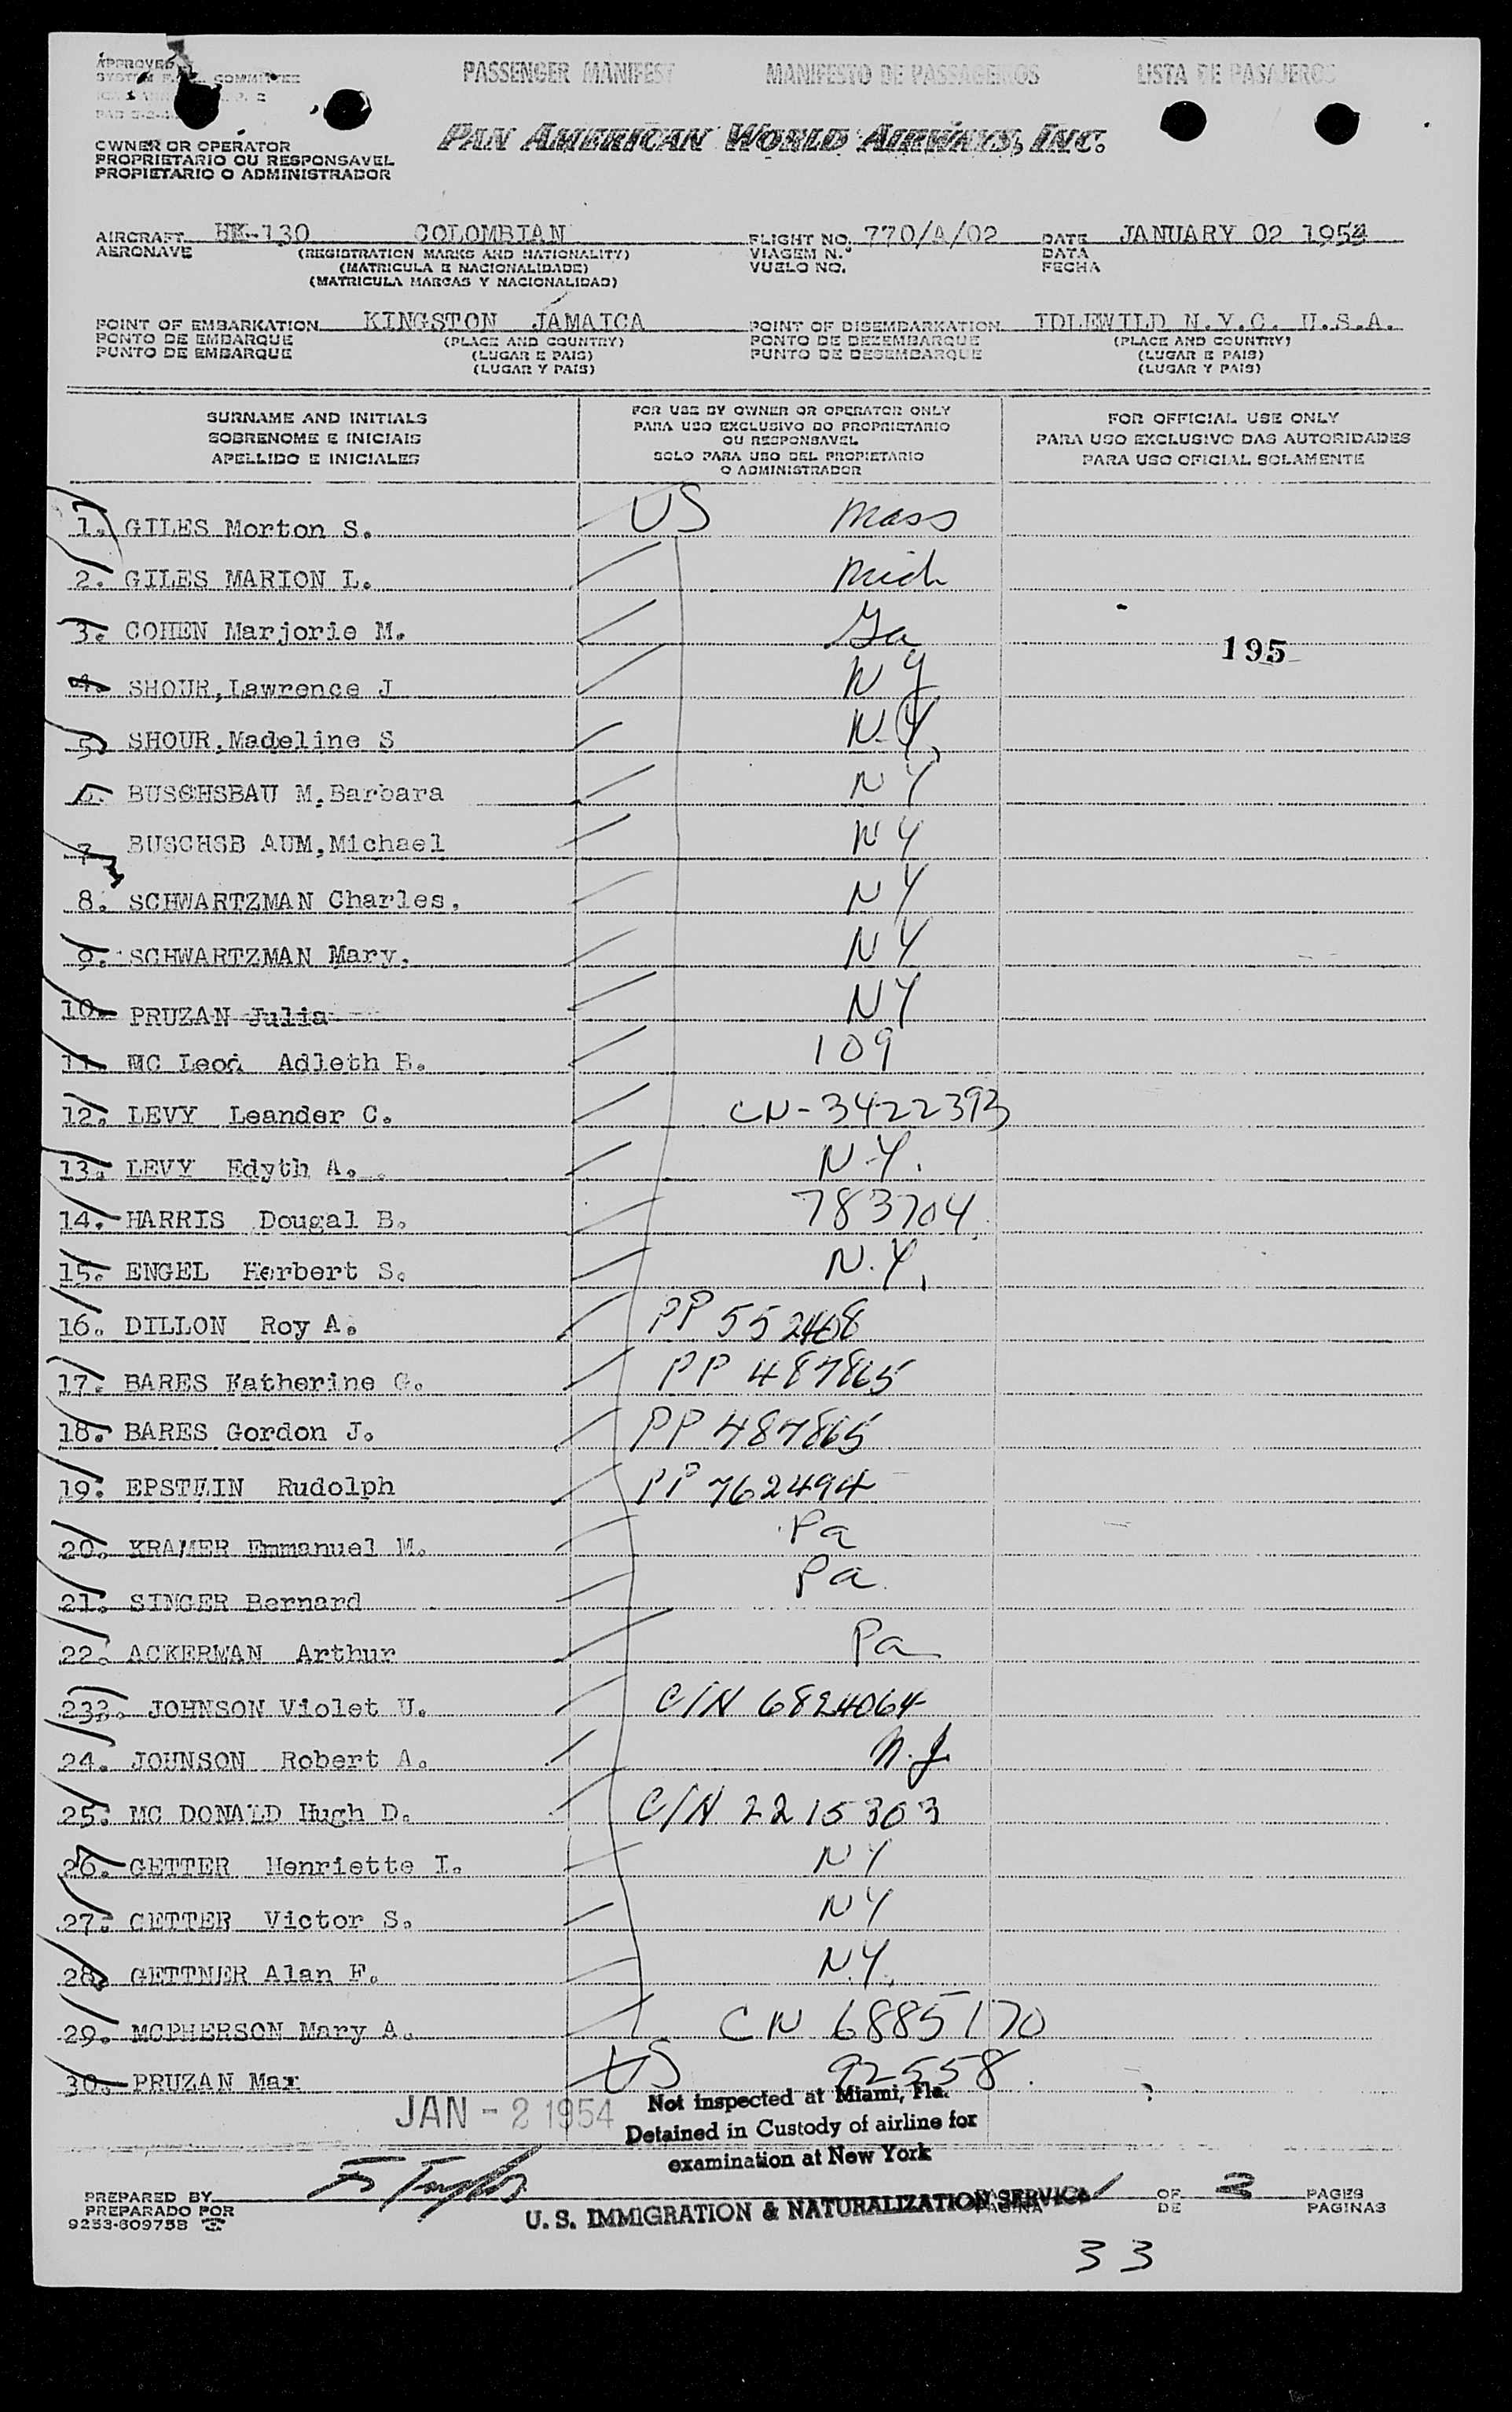 APPROVED
SYSTEM COMMITTEE
PASSENGER MANIFEST MANIFESTO DE PASSAGEIROS LISTA DE PASAJEROS
PAN AMERICAN WORLD AIRWAYS, INC.
OWNER OR OPERATOR
PROPRIETARIO OU RESPONSAVEL
PROPIETARIO O ADMINISTRADOR
AIRCRAFT HK-130 COLOMBIAN FLIGHT NO. 770/A/02 DATE JANUARY 02 1954
AERONAVE (REGISTRATION MARKS AND NATIONALITY) VIAGEM N.° DATA
(MATRICULA E NACIONALIDADE) VUELO NO. FECHA
(MATRICULA MARCAS Y NACIONALIDAD)
POINT OF EMBARKATION KINGSTON JAMAICA POINT OF DISEMBARKATION IDLEWILD N.Y.C. U.S.A.
PONTO DE EMBARQUE (PLACE AND COUNTRY) PONTO DE DEZEMBARQUE (PLACE AND COUNTRY)
PUNTO DE EMBARQUE (LUGAR E PAIS) PUNTO DE DESEMBARQUE (LUGAR E PAIS)
(LUGAR Y PAIS) (LUGAR Y PAIS)
SURNAME AND INITIALS
SOBRENOME E INICIAIS
APELLIDO E INICIALES
FOR USE BY OWNER OR OPERATOR ONLY
PARA USO EXCLUSIVO DO PROPRIETARIO
OU RESPONSAVEL
SOLO PARA USO DEL PROPIETARIO
O ADMINISTRADOR
FOR OFFICIAL USE ONLY
PARA USO EXCLUSIVO DAS AUTORIDADES
PARA USO OFICIAL SOLAMENTE
1. GILES Morton S. US Mass
2. GILES MARION L. Mich
3. COHEN Marjorie M. Ga
195
4. SHOUR, Lawrence J NY
5. SHOUR, Madeline S N.Y.
6. BUSCHSBAU M, Barbara NY
7. BUSCHSB AUM, Michael NY
8. SCHWARTZMAN Charles. NY
9. SCHWARTZMAN Mary. NY
10. PRUZAN Julia NY
11. MC Leod Adleth B. 109
12. LEVY Leander C. CN-3422393
13. LEVY Edyth A. N.Y.
14. HARRIS Dougal B. 783704
15. ENGEL Herbert S. N.Y.
16. DILLON Roy A. PP 552408
17. BARES Katherine G. PP 487865
18. BARES Gordon J. PP 487865
19. EPSTEIN Rudolph PP 762494
20. KRAMER Emmanuel M. Pa
21. SINGER Bernard Pa.
22. ACKERMAN Arthur Pa
233. JOHNSON Violet U. C/N 6824064
24. JOHNSON Robert A. N.J.
25. MC DONALD Hugh D. C/N 2215303
26. GETTER Henriette I. NY
27. GETTER Victor S. NY
28. GETTNER Alan F. N.Y.
29. MCPHERSON Mary A. CN 6885170
30. PRUZAN Max US 92558.
JAN - 2 1954
Not inspected at Miami, Fla.
Detained in Custody of airline for
examination at New York
U. S. IMMIGRATION & NATURALIZATION SERVICE
PREPARED BY 1 OF 2 PAGES
PREPARADO POR PAGINA DE PAGINAS
9253-60975B
33